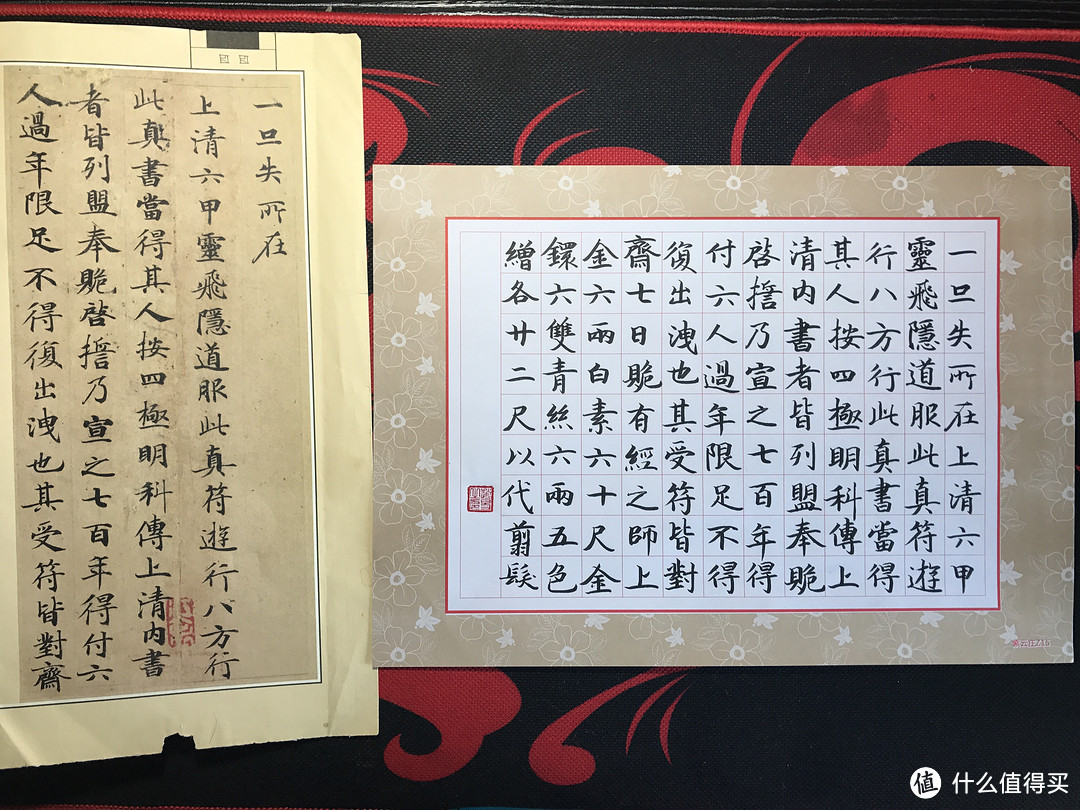 一旦失所在
上清六甲靈飛隱道服此真符遊行八方行
此真書當得其人按四極明科傳上清內書
者皆列盟奉貺啓誓乃宣之七百年得付六
人過年限足不得復出洩也其受符皆對齋
一旦失所在上清六甲
靈飛隱道服此真符遊
行八方行此真書當得
其人按四極明科傳上
清內書者皆列盟奉貺
啓誓乃宣之七百年得
付六人過年限足不得
復出洩也其受符皆對
齋七日貺有經之師上
金六兩白素六十尺金
鐶六雙青絲六兩五色
繒各廿二尺以代翦髮
值 什么值得买